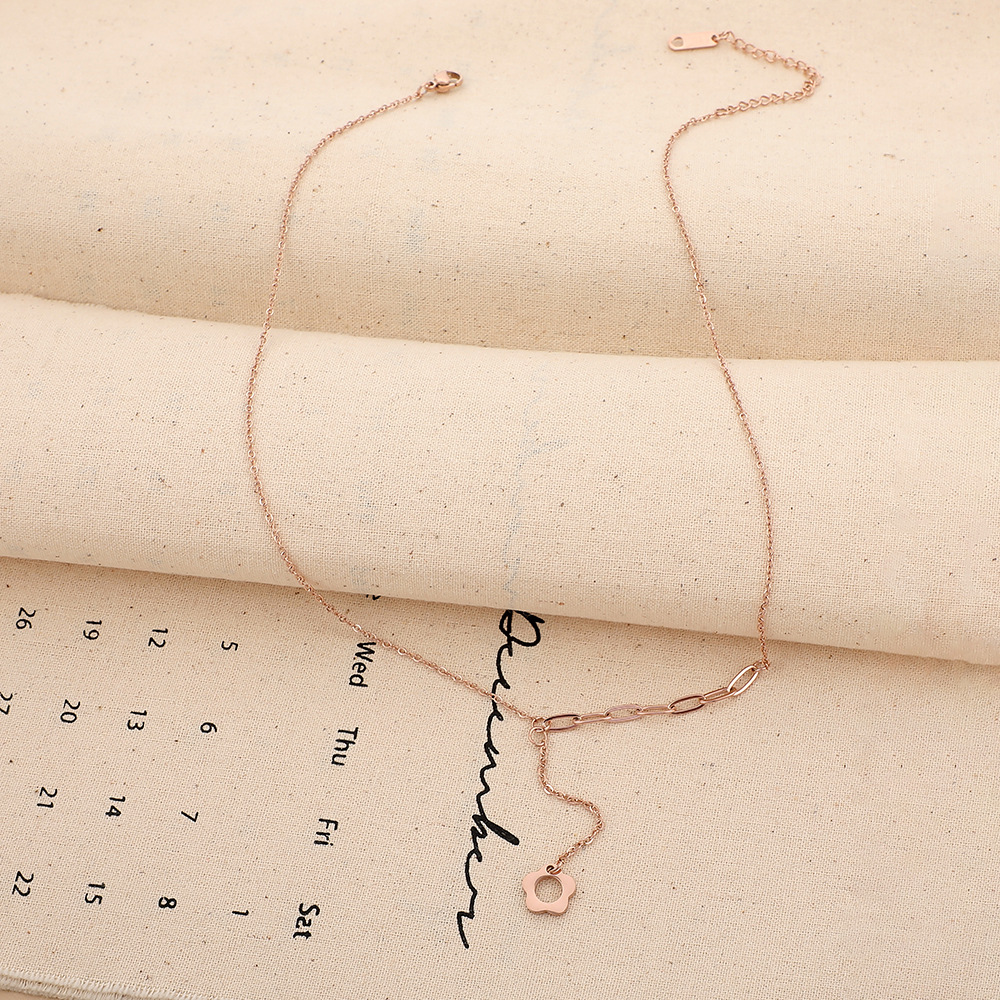 December
Wed Thu Fri Sat
1
5 6 7 8
12 13 14 15
19 20 21 22
26 27